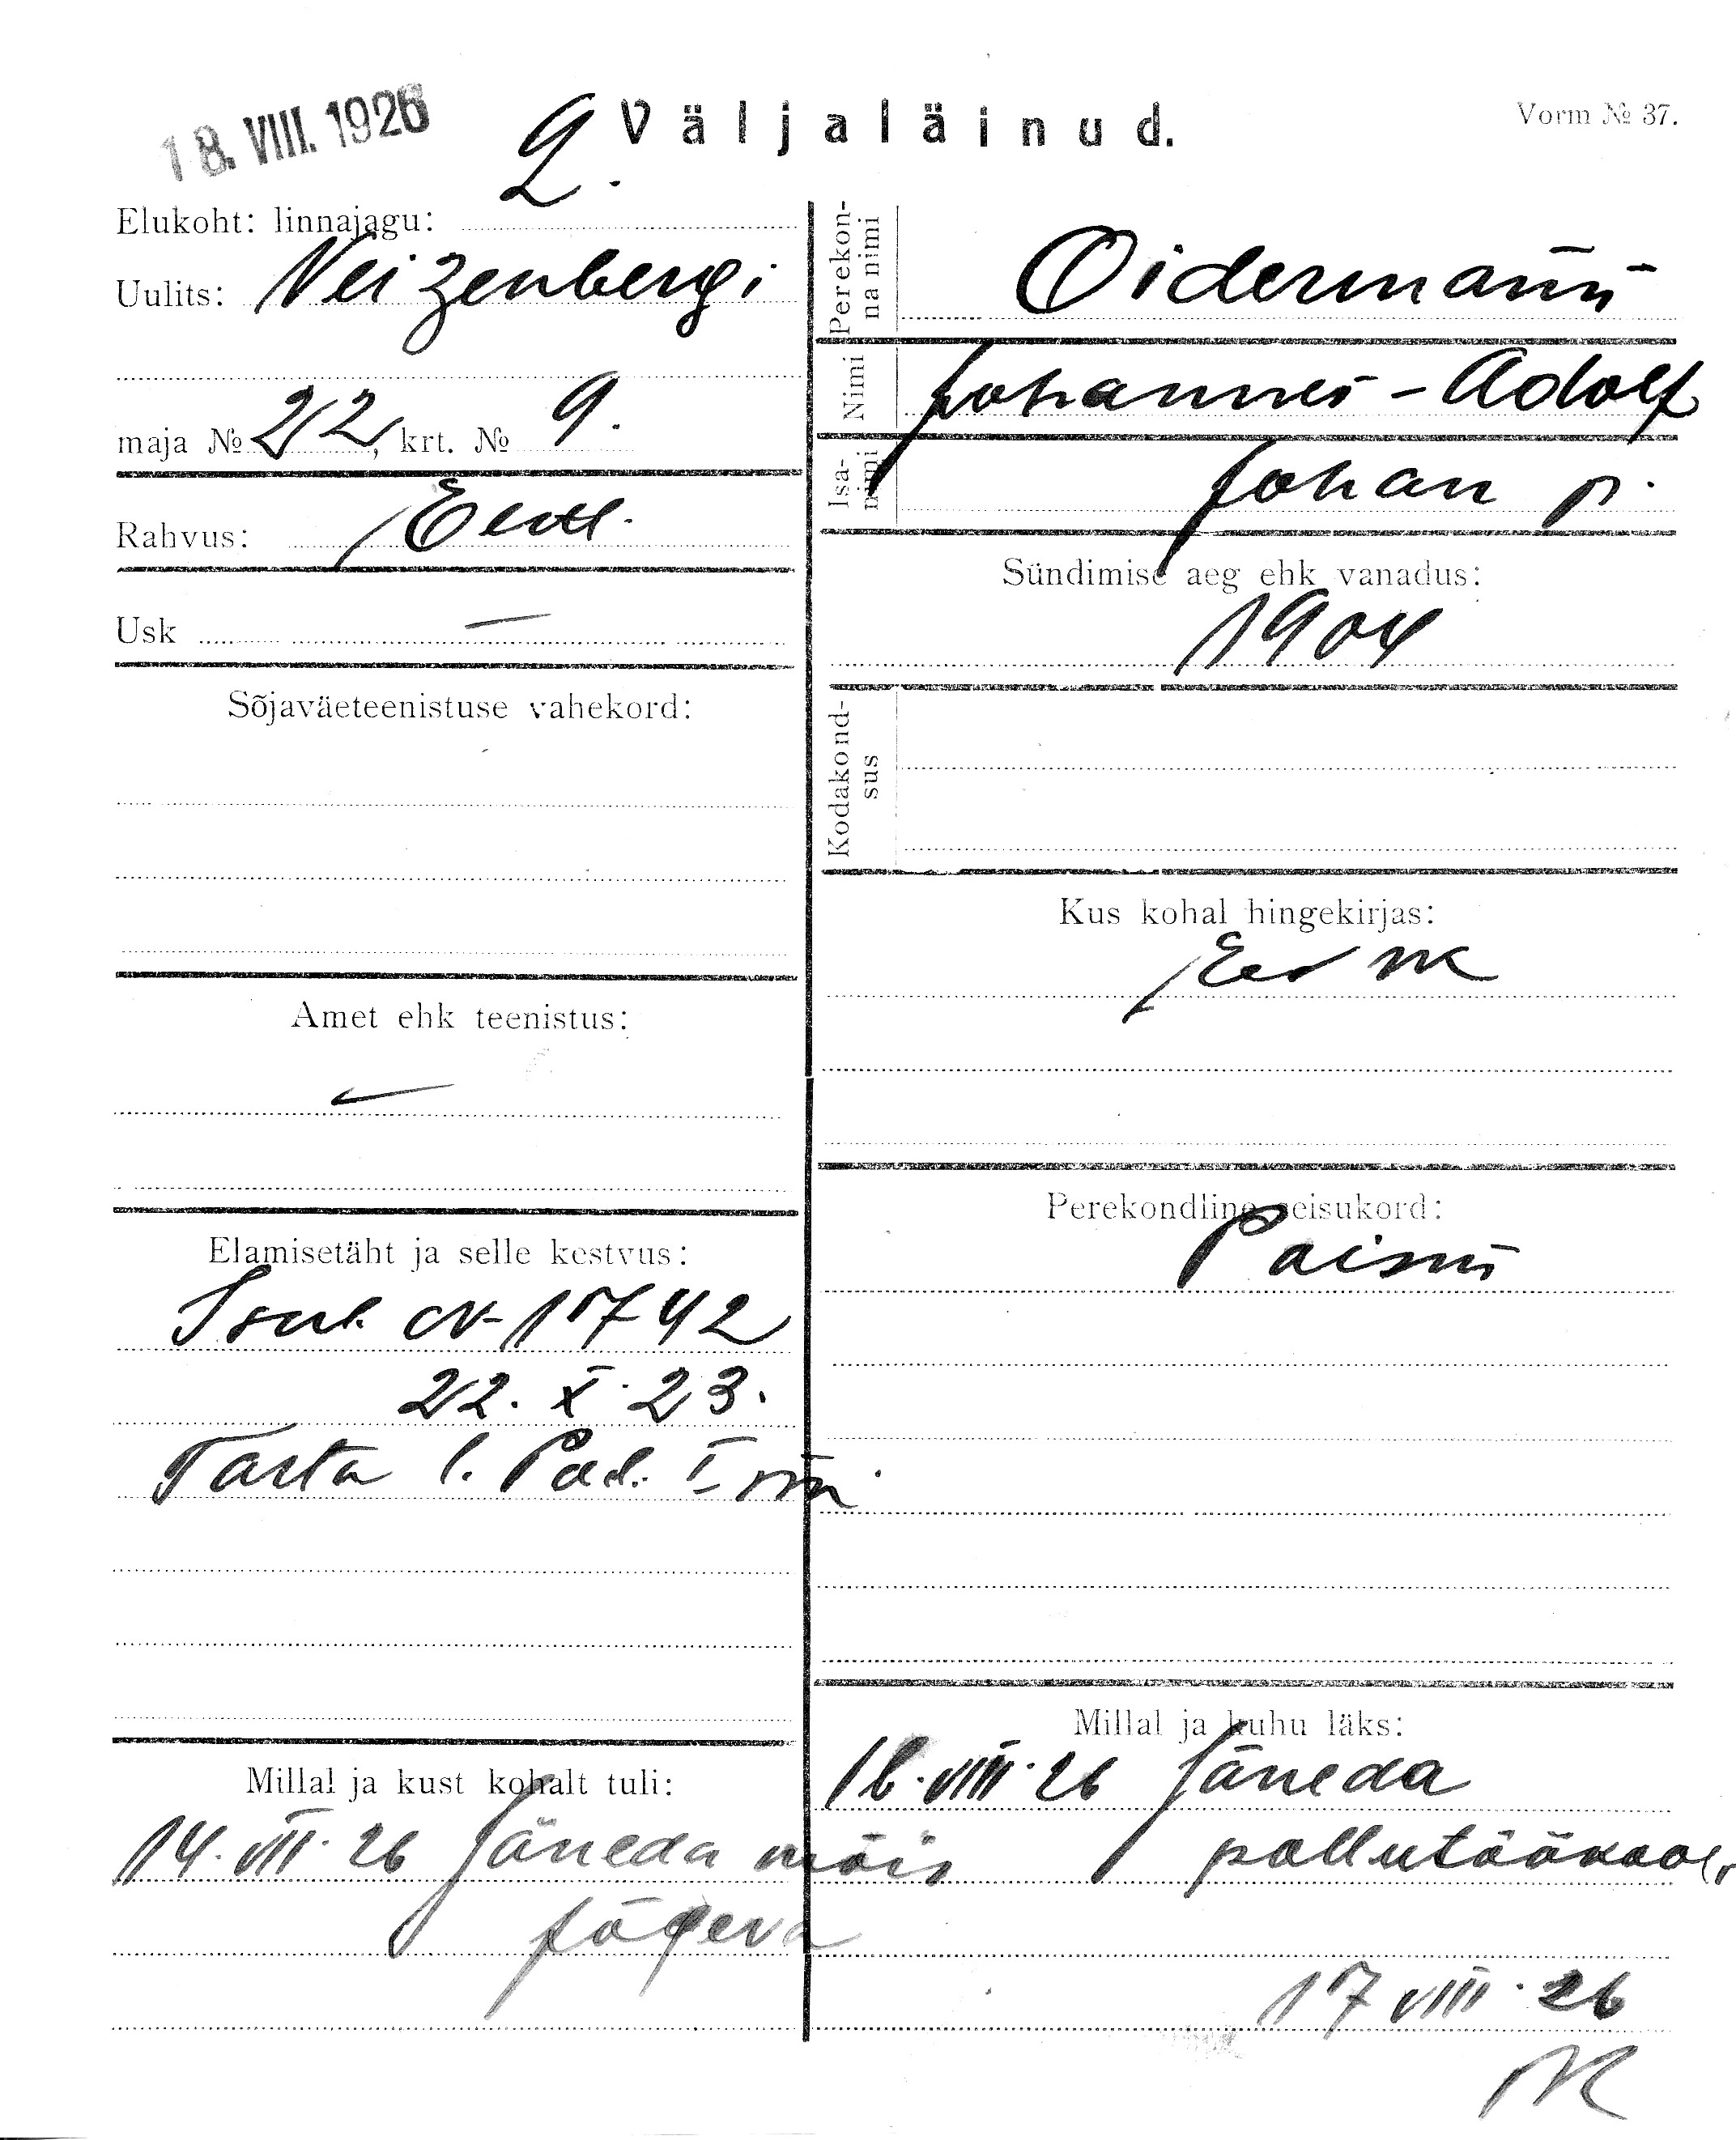 18. VIII. 1926
Väljaläinud.
Vorm № 37.
Elukoht: linnajagu: 2.
Uulits: Veizenbergi
maja № 22, krt. № 9.
Rahvus: Eestl.
Usk —
Sõjaväeteenistuse vahekord:
Amet ehk teenistus:
Elamisetäht ja selle kestvus:
Isut. N 15742
22. X 23.
Tartu l. Pol. I
Millal ja kust kohalt tuli:
14. VII. 26 Jäneda mõis
Jõgeva
Perekonna nimi
Oidermann
Nimi
Johannes-Adolf
Isanimi
Johan p.
Sündimise aeg ehk vanadus:
1904
Kodakondsus
Kus kohal hingekirjas:
Perekondline seisukord:
Poissm
Millal ja kuhu läks:
16. VIII. 26 Jäneda
põllutöökool
17 VIII. 26